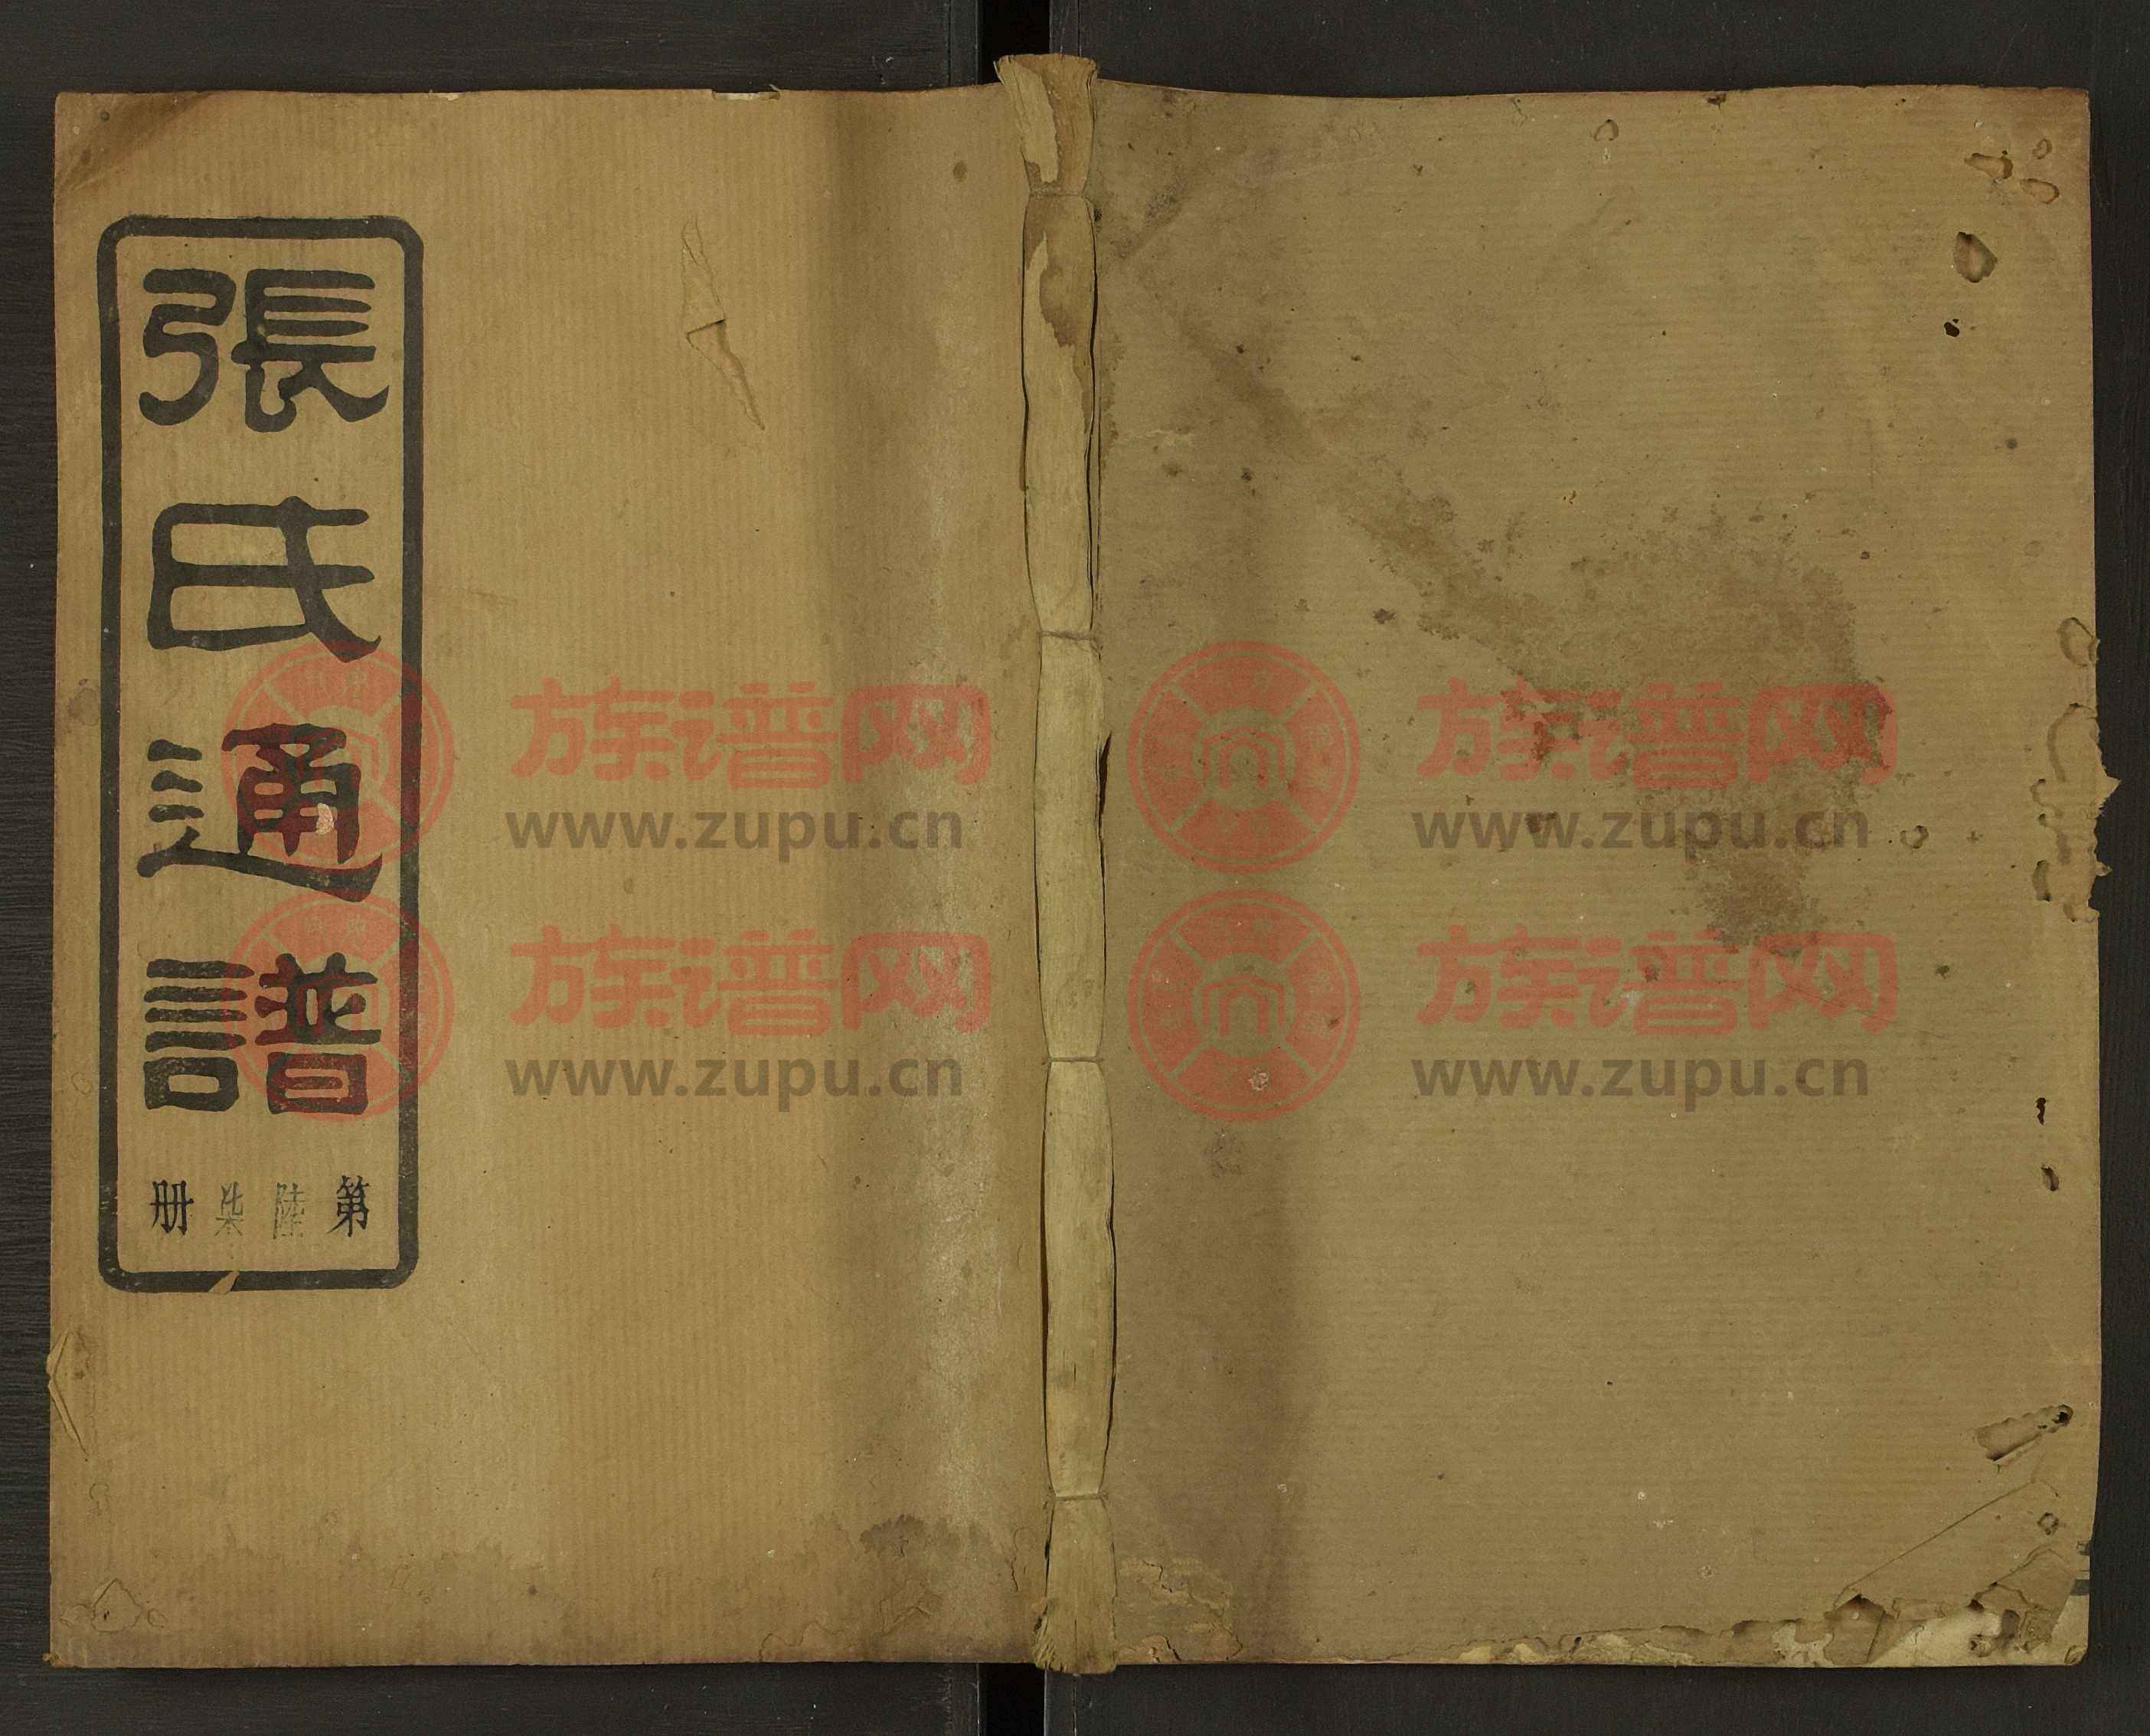 張氏通譜
第陸柒册
族谱网
www.zupu.cn
族谱网
www.zupu.cn
族谱网
www.zupu.cn
族谱网
www.zupu.cn